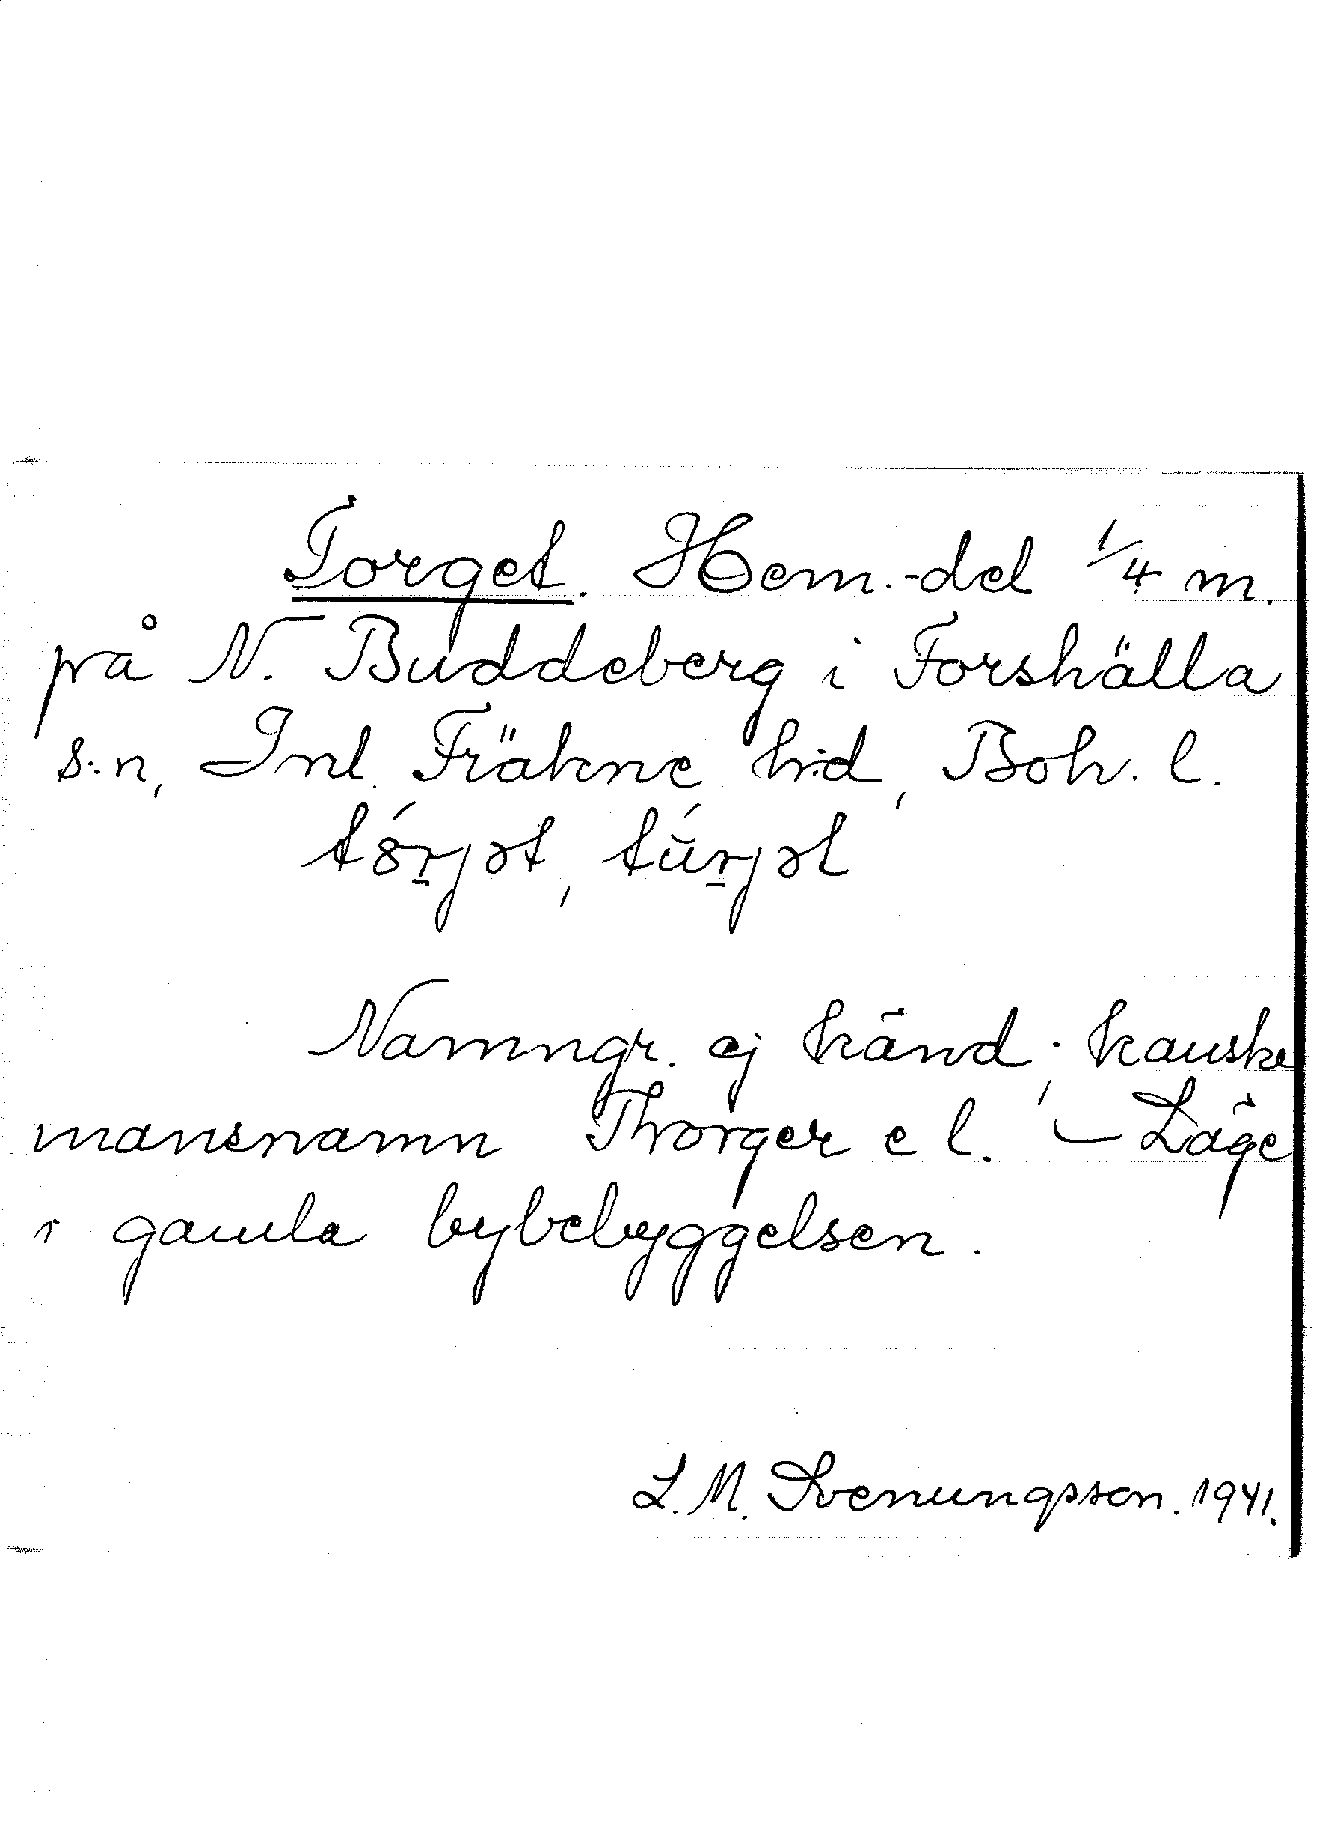 Torget. Hem.-del 1/4 m.
på N. Buddeberg i Forshälla
s:n, Inl. Fräkne h:d, Boh. l.
Namngr. ej känd; kanske
mansnamn Thorger e l. — Läge
i gamla bybebyggelsen.
L. M. Svenungsson. 1941.